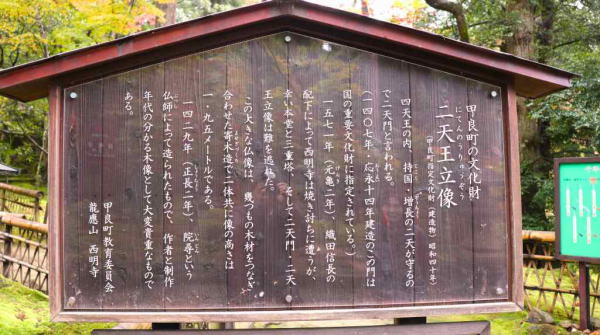 甲良町の文化財
にてんのうりゅうぞう
二天王立像
(甲良町指定文化財(建造物) 昭和四十年)
四天王の内、持国・増長の二天が守るの
で二天門と言われる。
(一四〇七年・応永十四年建造のこの門は
国の重要文化財に指定されている。)
げんき
一五七一年(元亀二年)、織田信長の
配下によって西明寺は焼き討ちに遭うが、
幸い本堂と三重塔、そして二天門・二天
王立像は難を逃れた。
この大きな仏像は、幾つもの木材をつなぎ
合わせた寄木造で二体共に像の高さは
一・九五メートルである。
一四二九年(正長二年)、院尋という
仏師によって造られたもので、作者と制作
年代の分かる木像として大変貴重なもので
ある。
甲良町教育委員会
龍應山 西明寺